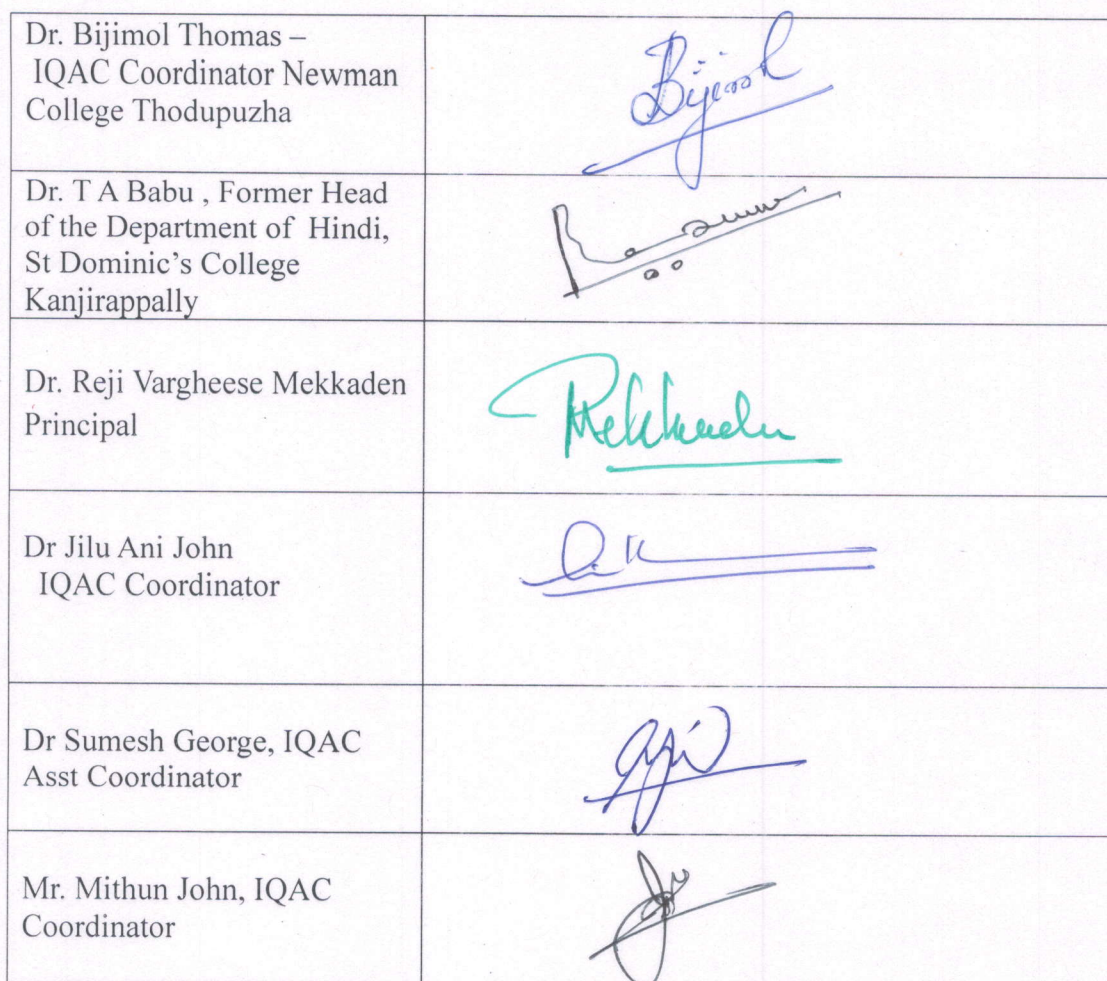 Dr. Bijimol Thomas –
IQAC Coordinator Newman
College Thodupuzha
Bijimol
Dr. T A Babu , Former Head
of the Department of Hindi,
St Dominic's College
Kanjirappally
Dr. Reji Vargheese Mekkaden
Principal
Mekkaden
Dr Jilu Ani John
IQAC Coordinator
Dr Sumesh George, IQAC
Asst Coordinator
Mr. Mithun John, IQAC
Coordinator